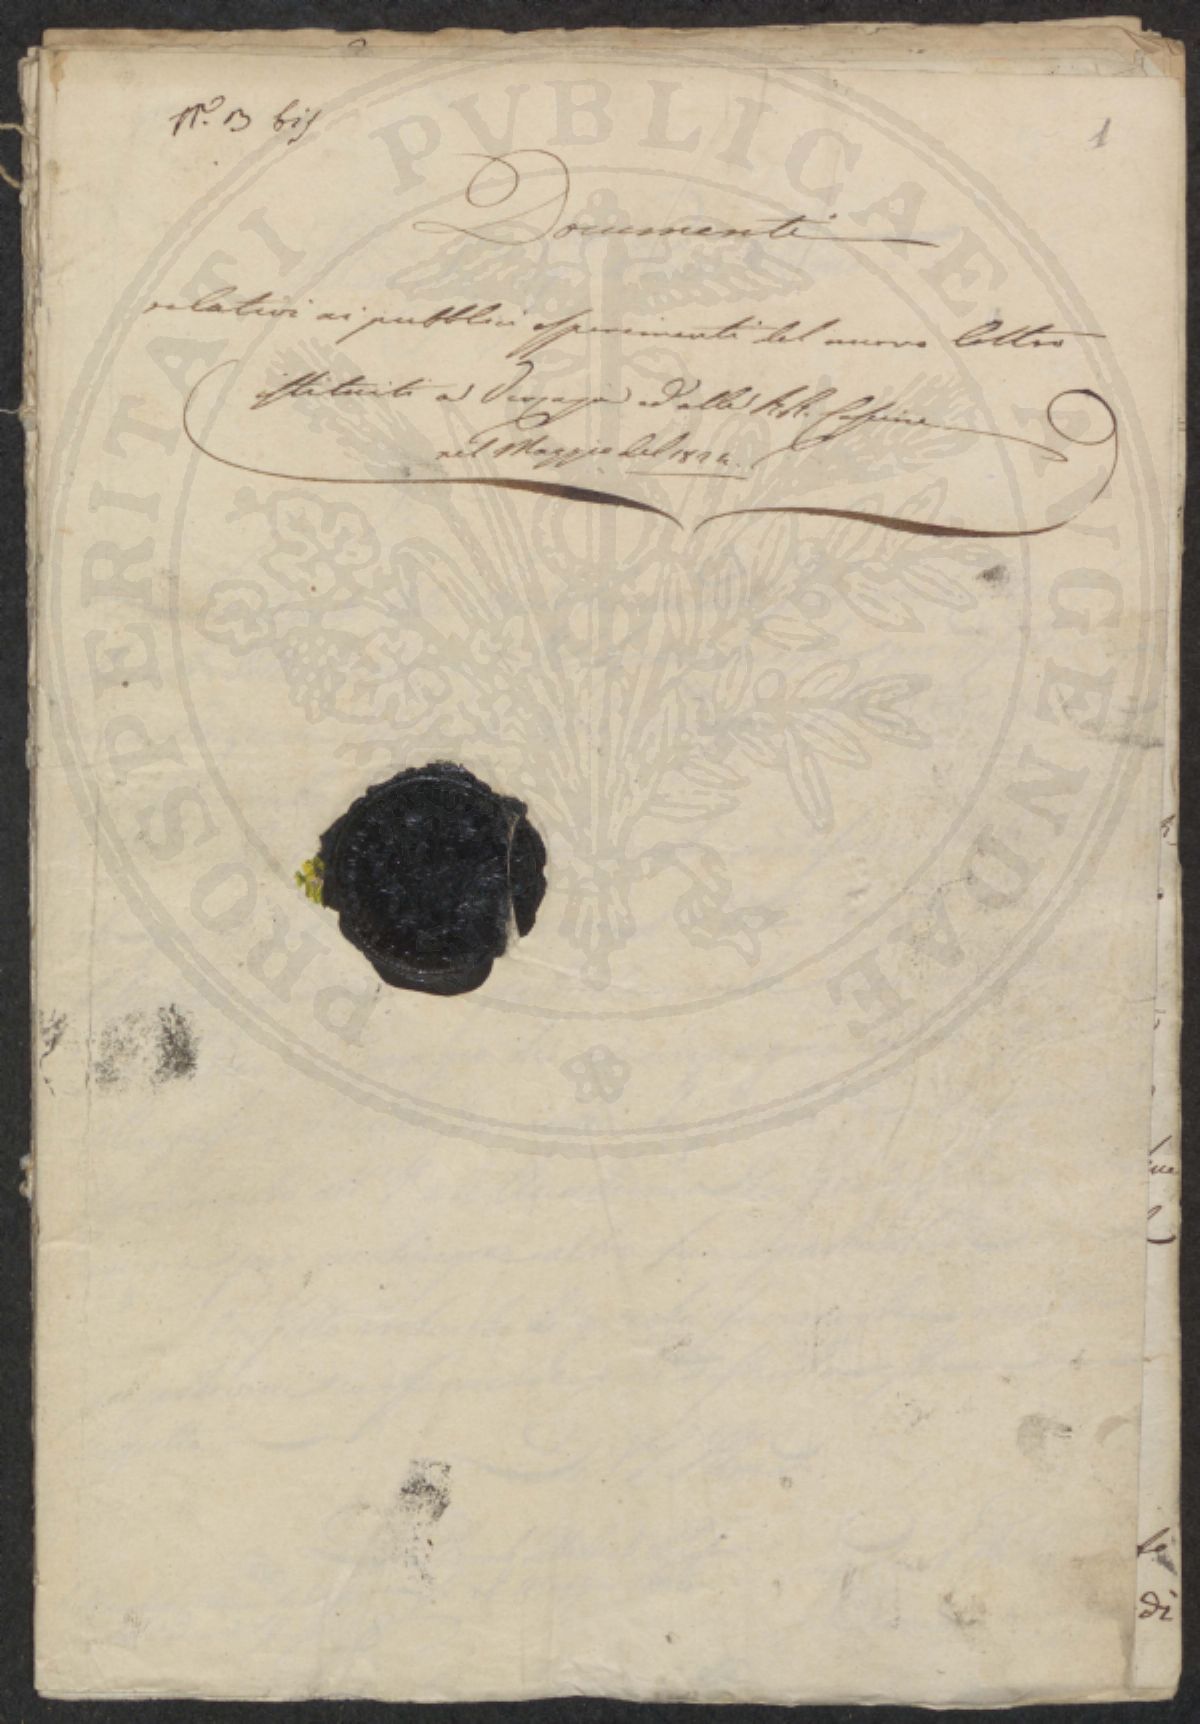 N.º 13 bis
1
Documenti
relativi ai pubblici esperimenti del nuovo Coltro
istituiti a ed alle RR. Cascine
nel Maggio del 1824.
te
di
PROSPERITATI PUBLICAE AUGENDAE